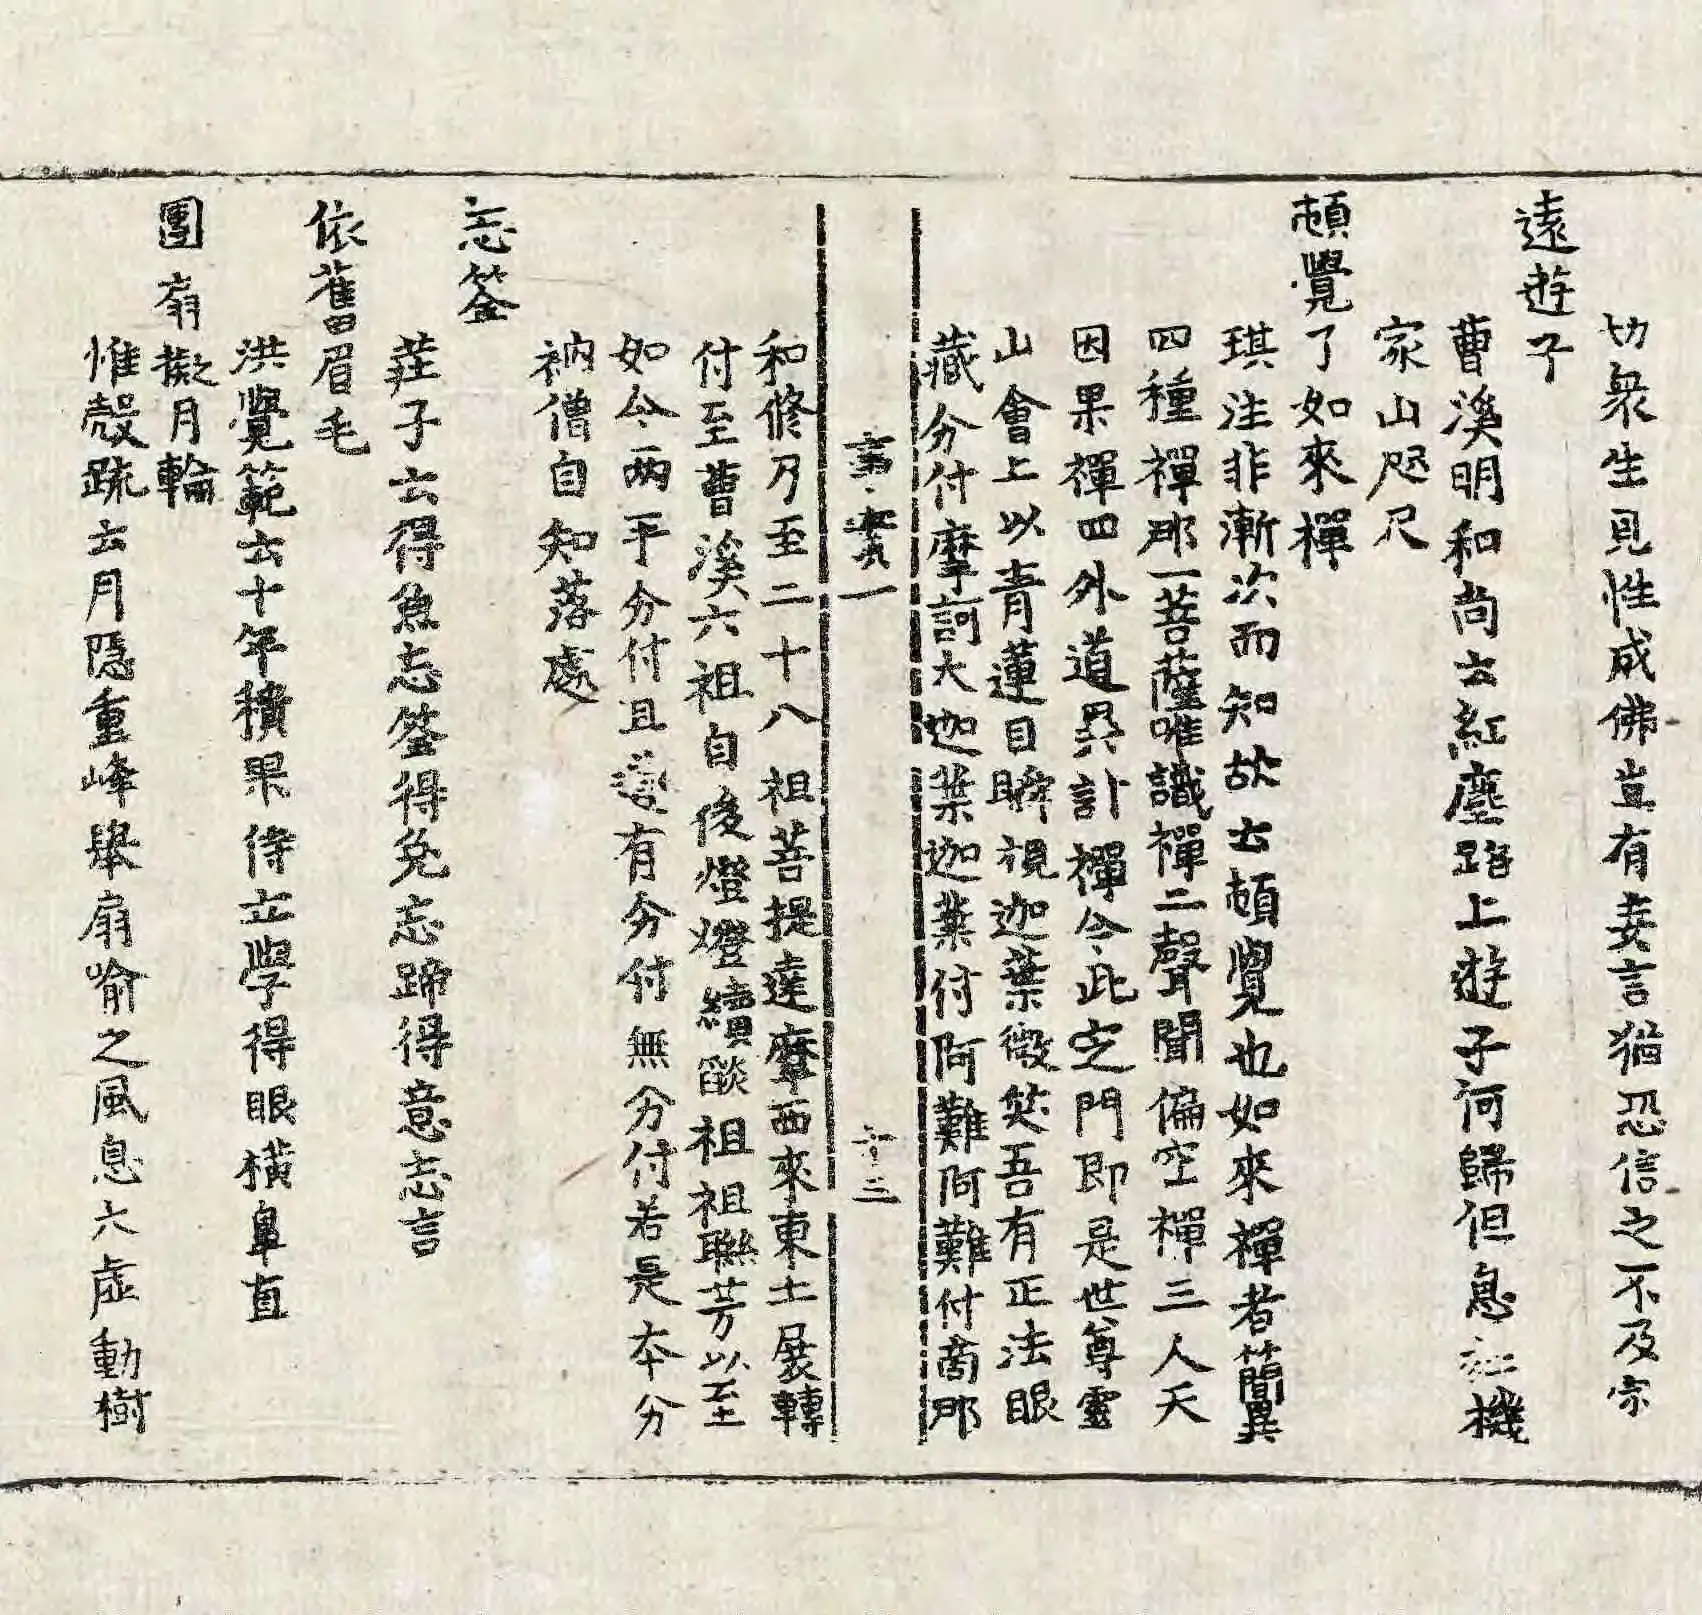 切衆生見性成佛豈有妄言猶恐信之不及宗
遠遊子
曹溪明和尚云紅塵路上遊子何歸但息 機
家山咫尺
頓覺了如來禪
琪注非漸次而知故云頓覺也如來禪者簡異
四種禪那一菩薩唯識禪二聲聞偏空禪三人天
因果禪四外道異計禪今此定門即是世尊靈
山會上以青蓮目瞬視迦葉微笑吾有正法眼
藏分付摩訶大迦葉迦葉付阿難阿難付商那
事實一 十三
和修乃至二十八祖菩提達摩西來東土展轉
付至曹溪六祖自後燈燈續燄祖祖聯芳以至
如今兩手分付且道有分付無分付若是本分
衲僧自知落處
忘筌
莊子云得魚忘筌得兔忘蹄得意忘言
依舊眉毛
洪覺範云十年積果侍立學得眼橫鼻直
團扇擬月輪
惟慤疏云月隱重峰舉扇喻之風息六虛動樹